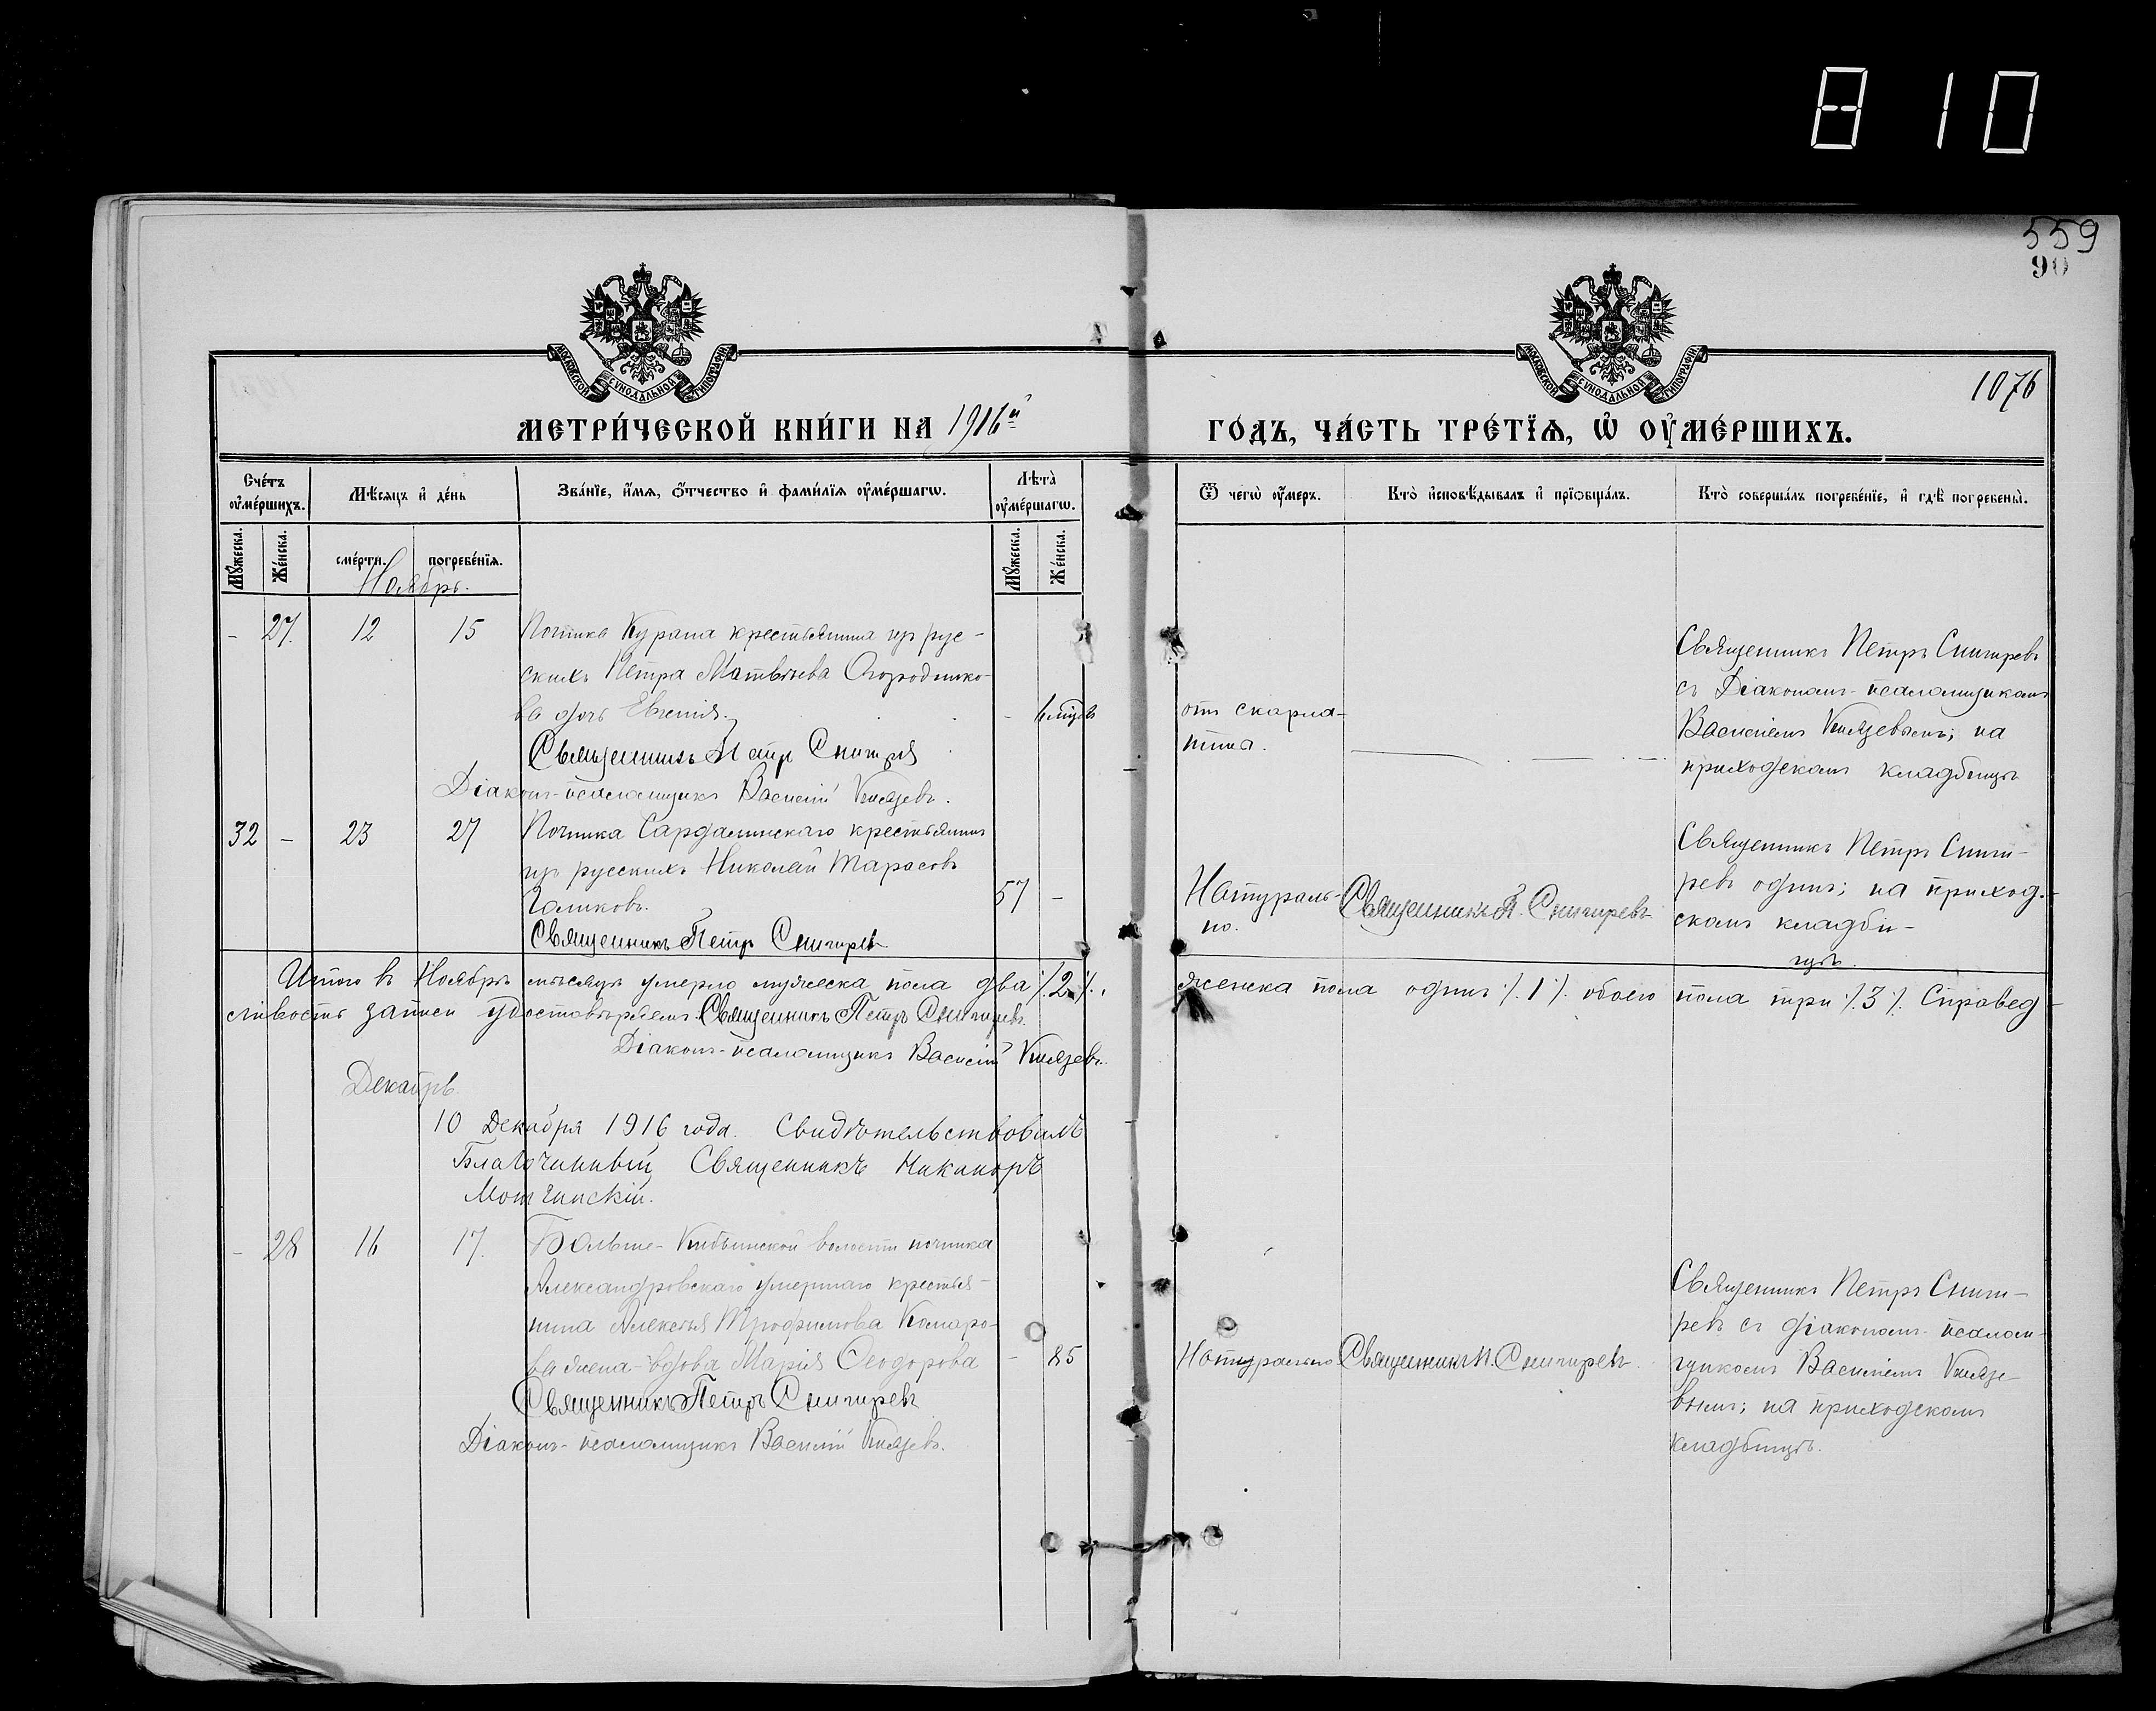 810
559
90
МОСКОВСКОЙ СѴНОДАЛЬНОЙ ТИПОГРАФІИ
МОСКОВСКОЙ СѴНОДАЛЬНОЙ ТИПОГРАФІИ
1076
МЕТРИ́ЧЕСКОЙ КНИ́ГИ НА 1916й
ГО́ДЪ, ЧА́СТЬ ТРЕ́ТЇѦ, Ѡ҆ ОУ҆МЕ́РШИХЪ.
Сче́тъ оу҆ме́ршихъ.
Мѣ́сяцъ и҆ де́нь
Зва́нїе, и҆́мѧ, ѻ҆́тчество и҆ фами́лїѧ оу҆ме́ршагѡ.
Лѣ́та оу҆ме́ршагѡ.
Ѿ чегѡ̀ оу҆́меръ.
Кто̀ и҆сповѣ́дывалъ и҆ прїѡбща́лъ.
Кто̀ соверша́лъ погребе́нїе, и҆ гдѣ̀ погребены̀.
Мꙋ́жеска.
Же́нска.
сме́рти.
погребе́нїѧ.
Мꙋ́жеска.
Же́нска.
Ноябрь.
- 27. 12 15
Починка Курана крестьянина изъ рус-
скихъ Петра Матвѣева Огороднико-
ва дочь Евгенія.
Священникъ Петр Снигирев
Діаконъ-псаломщикъ Василій Князевъ.
- 6 мцевъ
отъ скарла-
тины.
Священникъ Петръ Снигиревъ
съ Діакономъ-псаломщикомъ
Василіемъ Князевымъ; на
приходскомъ кладбищѣ
32 - 23 27
Починка Сардалинскаго крестьянинъ
изъ русскихъ Николай Тарасовъ
Голиковъ.
Священникъ Петръ Снигирев
57 -
Натураль-
но.
Священникъ П. Снигиревъ
Священникъ Петръ Сниги-
ревъ одинъ; на приход-
скомъ кладби-
щѣ.
Итого въ Ноябрѣ мѣсяцѣ умерло мужеска пола два ⁒2⁒. женска пола одинъ ⁒1⁒ обоего пола три ⁒3⁒. Справед-
ливость записи удостовѣряемъ: Священникъ Петръ Снигиревъ.
Діаконъ-псаломщикъ Василій Князевъ.
Декабрь
10 Декабря 1916 года. Свидѣтельствовалъ
Благочинный Священникъ Никаноръ
- 28 16 17.
Больше-Кибьинской волости починка
Александровскаго умершаго крестья-
нина Алексѣя Трофимова Комаро-
ва жена-вдова Марія Ѳеодорова
Священникъ Петръ Снигирев
Діаконъ-псаломщикъ Василій Князевъ.
- 85
Натурально
Священникъ П. Снигирев.
Священникъ Петръ Сниги-
ревъ съ діакономъ-псалом-
щикомъ Василіемъ Князе-
вымъ; на приходскомъ
кладбищѣ.